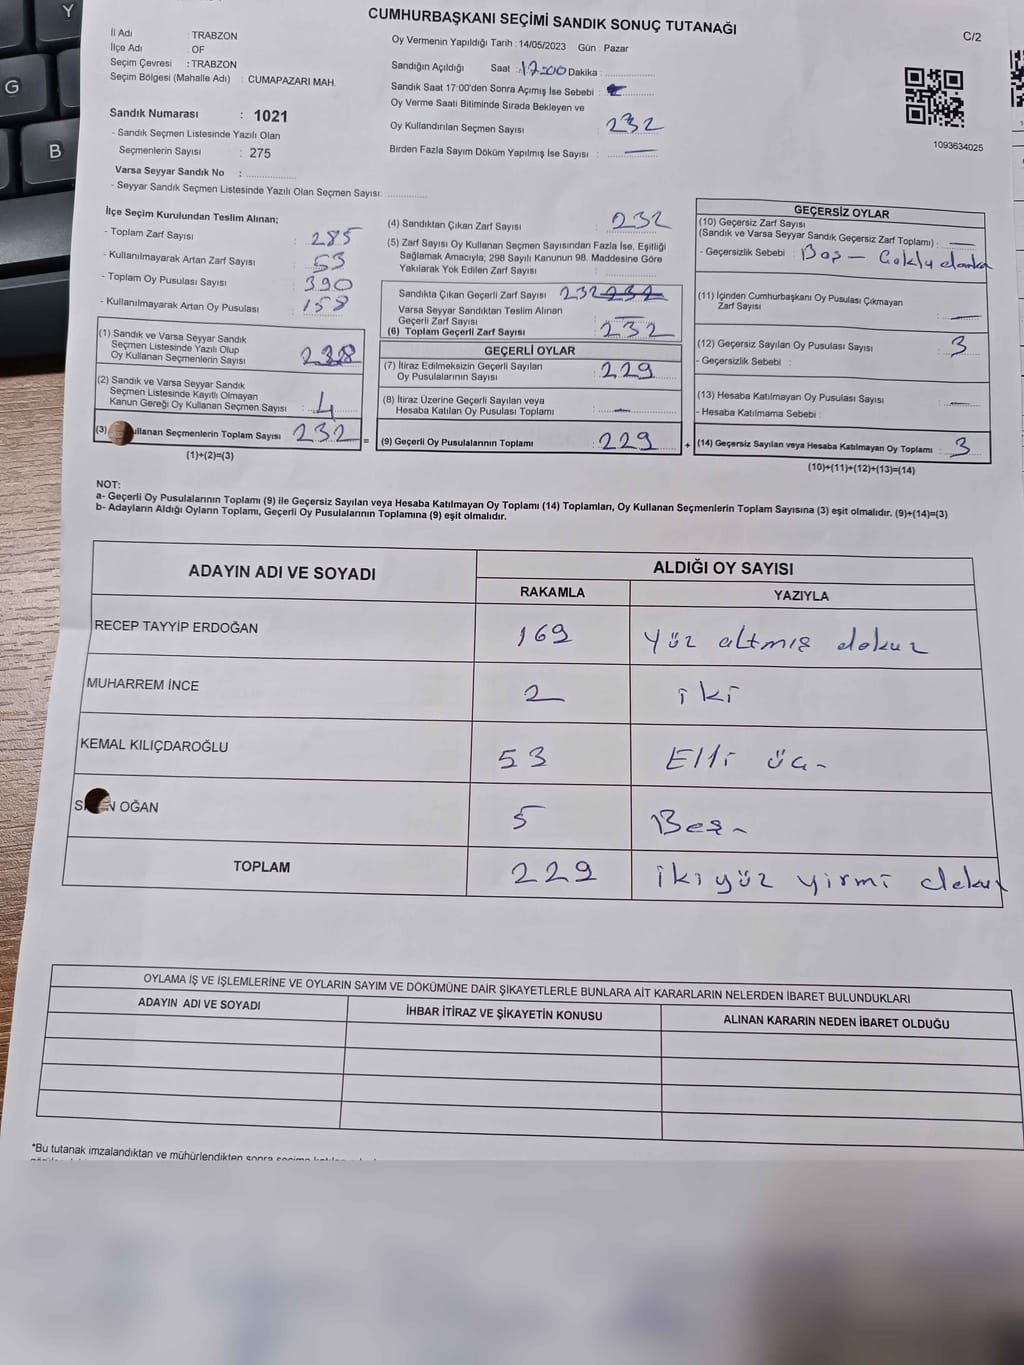 CUMHURBAŞKANI SEÇİMİ SANDIK SONUÇ TUTANAĞI
C/2
İl Adı : TRABZON
İlçe Adı : OF
Seçim Çevresi : TRABZON
Seçim Bölgesi (Mahalle Adı) : CUMAPAZARI MAH.
Sandık Numarası : 1021
- Sandık Seçmen Listesinde Yazılı Olan
Seçmenlerin Sayısı : 275
Varsa Seyyar Sandık No :
- Seyyar Sandık Seçmen Listesinde Yazılı Olan Seçmen Sayısı:
Oy Vermenin Yapıldığı Tarih : 14/05/2023 Gün : Pazar
Sandığın Açıldığı Saat : 17:00 Dakika
Sandık Saat 17:00'den Sonra Açımış İse Sebebi :
Oy Verme Saati Bitiminde Sırada Bekleyen ve
Oy Kullandırılan Seçmen Sayısı : 232
Birden Fazla Sayım Döküm Yapılmış İse Sayısı : —
1093634025
İlçe Seçim Kurulundan Teslim Alınan;
- Toplam Zarf Sayısı : 285
- Kullanılmayarak Artan Zarf Sayısı : 53
- Toplam Oy Pusulası Sayısı : 390
- Kullanılmayarak Artan Oy Pusulası : 158
(1) Sandık ve Varsa Seyyar Sandık
Seçmen Listesinde Yazılı Olup
Oy Kullanan Seçmenlerin Sayısı
(2) Sandık ve Varsa Seyyar Sandık
Seçmen Listesinde Kayıtlı Olmayan
Kanun Gereği Oy Kullanan Seçmen Sayısı : 4
(3) ullanan Seçmenlerin Toplam Sayısı 232
(1)+(2)=(3)
(4) Sandıktan Çıkan Zarf Sayısı : 232
(5) Zarf Sayısı Oy Kullanan Seçmen Sayısından Fazla İse, Eşitliği
Sağlamak Amacıyla; 298 Sayılı Kanunun 98. Maddesine Göre
Yakılarak Yok Edilen Zarf Sayısı :
Sandıkta Çıkan Geçerli Zarf Sayısı 232 232
Varsa Seyyar Sandıktan Teslim Alınan
Geçerli Zarf Sayısı : —
(6) Toplam Geçerli Zarf Sayısı : 232
GEÇERLİ OYLAR
(7) İtiraz Edilmeksizin Geçerli Sayılan
Oy Pusulalarının Sayısı : 229
(8) İtiraz Üzerine Geçerli Sayılan veya
Hesaba Katılan Oy Pusulası Toplamı : —
= (9) Geçerli Oy Pusulalarının Toplamı : 229
GEÇERSİZ OYLAR
(10) Geçersiz Zarf Sayısı
(Sandık ve Varsa Seyyar Sandık Geçersiz Zarf Toplamı) : —
- Geçersizlik Sebebi : Boş —
(11) İçinden Cumhurbaşkanı Oy Pusulası Çıkmayan
Zarf Sayısı : —
(12) Geçersiz Sayılan Oy Pusulası Sayısı : 3
- Geçersizlik Sebebi :
(13) Hesaba Katılmayan Oy Pusulası Sayısı : —
- Hesaba Katılmama Sebebi :
+ (14) Geçersiz Sayılan veya Hesaba Katılmayan Oy Toplamı : 3
(10)+(11)+(12)+(13)=(14)
NOT:
a- Geçerli Oy Pusulalarının Toplamı (9) ile Geçersiz Sayılan veya Hesaba Katılmayan Oy Toplamı (14) Toplamları, Oy Kullanan Seçmenlerin Toplam Sayısına (3) eşit olmalıdır. (9)+(14)=(3)
b- Adayların Aldığı Oyların Toplamı, Geçerli Oy Pusulalarının Toplamına (9) eşit olmalıdır.
ADAYIN ADI VE SOYADI
ALDIĞI OY SAYISI
RAKAMLA YAZIYLA
RECEP TAYYİP ERDOĞAN 169 Yüz altmış dokuz
MUHARREM İNCE 2 iki
KEMAL KILIÇDAROĞLU 53 Elli üç
S N OĞAN 5 Beş
TOPLAM 229 iki yüz yirmi dokuz
OYLAMA İŞ VE İŞLEMLERİNE VE OYLARIN SAYIM VE DÖKÜMÜNE DAİR ŞİKAYETLERLE BUNLARA AİT KARARLARIN NELERDEN İBARET BULUNDUKLARI
ADAYIN ADI VE SOYADI İHBAR İTİRAZ VE ŞİKAYETİN KONUSU ALINAN KARARIN NEDEN İBARET OLDUĞU
*Bu tutanak imzalandıktan ve mühürlendikten sonra
Y
G
B